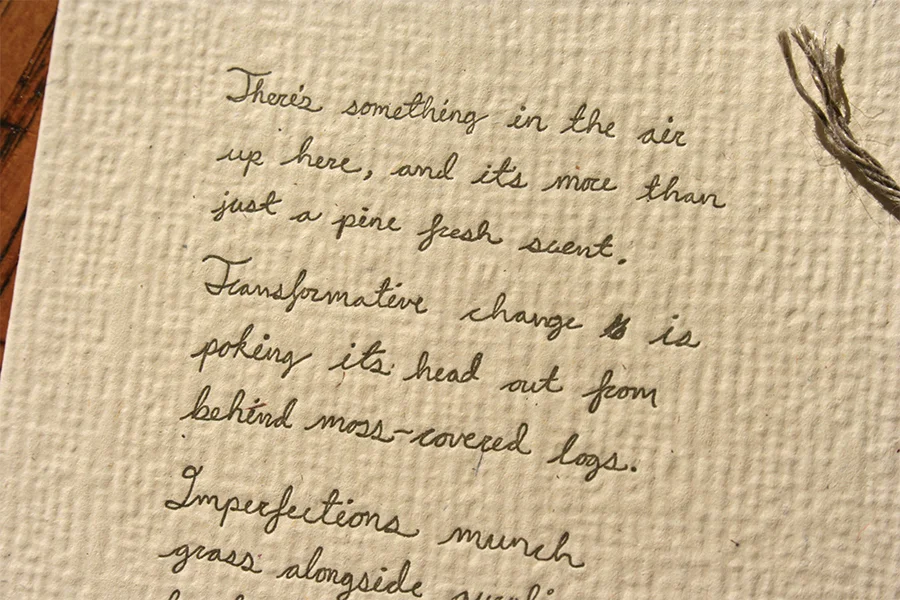 There's something in the air
up here, and it's more than
just a pine fresh scent.
Transformative change is
poking its head out from
behind moss-covered logs.
Imperfections munch
grass alongside